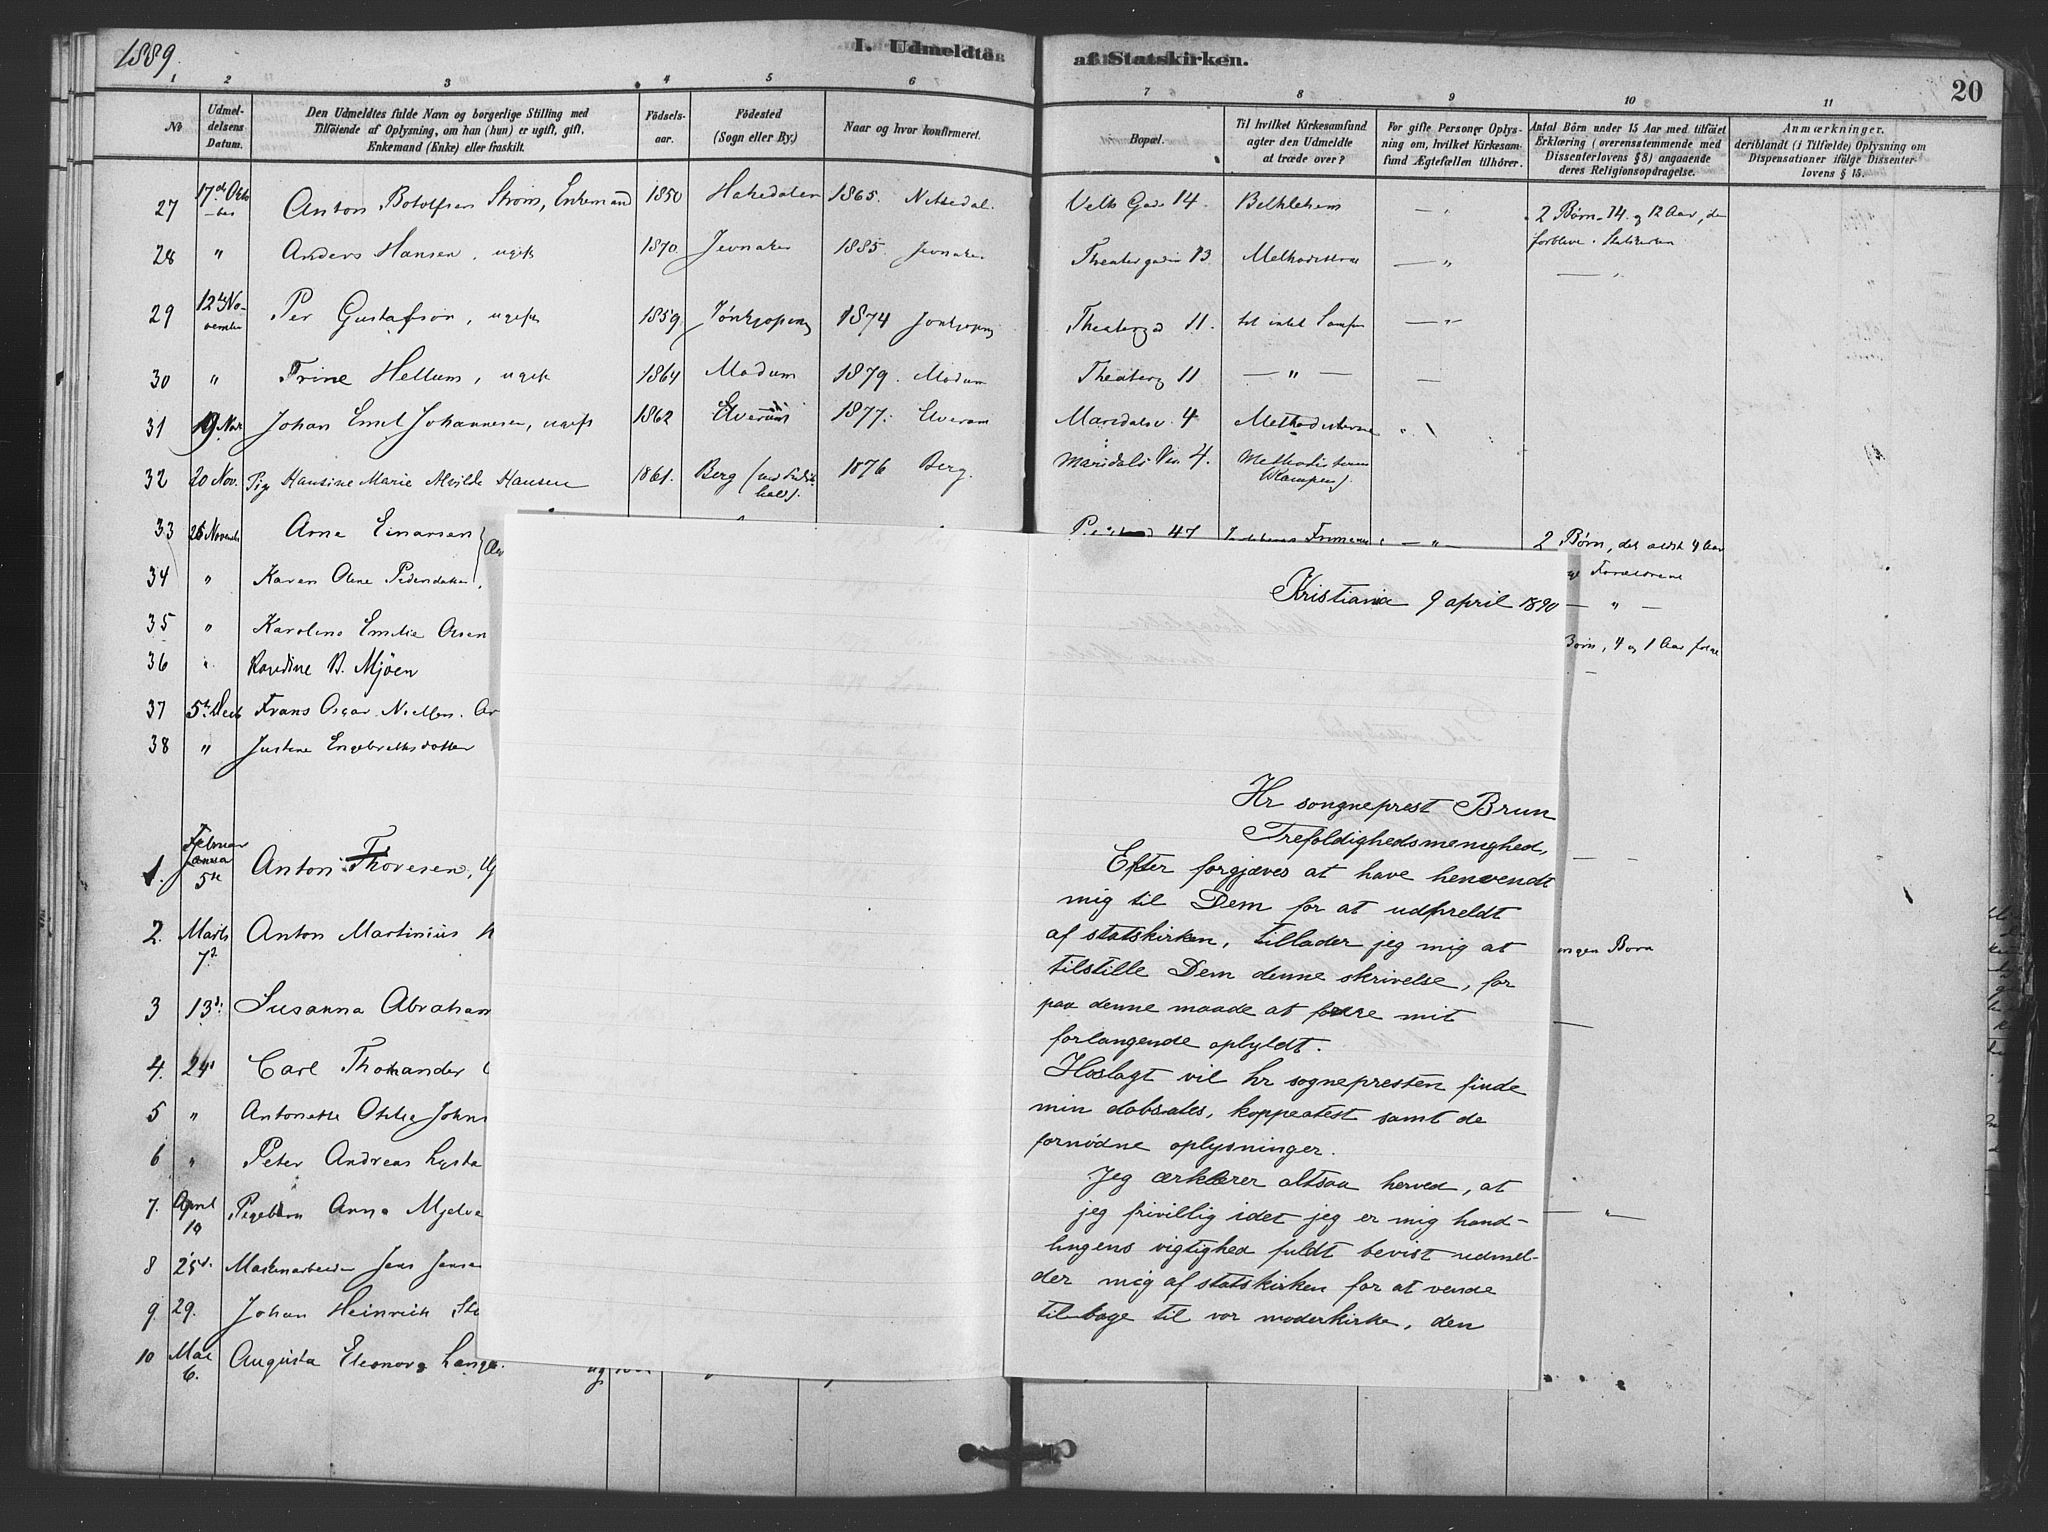 1889.
I. Udmeldte af Statskirken.
20
1 2 3 4 5 6 7 8 9 10 11
No
Udmeldelsens Datum.
Den Udmeldtes fulde Navn og borgerlige Stilling med
Tilföiende af Oplysning, om han (hun) er ugift, gift,
Enkemand (Enke) eller fraskilt.
Födselsaar.
Födested
(Sogn eller By.)
Naar og hvor konfirmeret.
Bopæl.
Til hvilket Kirkesamfund
agter den Udmeldte
at træde over?
For gifte Personer Oplysning om, hvilket Kirkesamfund Ægtefællen tilhörer.
Antal Börn under 15 Aar med tilföiet
Erklæring (overensstemmende med
Dissenterlovens § 8) angaaende
deres Religionsopdragelse.
Anmærkninger.
deriblandt (i Tilfælde) Oplysning om
Dispensationer ifölge Dissenterlovens § 15.
27 17de Anton Botolfsen Strøm, Enkemand 1850 Hakedalen 1865. Nittedal. Gade 14. Bethlehem — " 2 Børn 14 og 12 Aar, de
forblive i Statskirken
28 " Anders Hansen, ugift 1870 Jevnaker 1885. Jevnaker Theatergaden 13 Methodisterne — " — "
29 12te November Per Gustafson, ugift 1859 Jönkjoping 1874 Jonkjoping Theaterg 11. til intet Samfun — "
30 " Trine Hellum, ugift 1864 Modum 1879. Modum Theaterg 11 — " — —
31 19 Nov. Johan Emil Johannesen, ugift 1862 Elverum 1877. Elverum Maridalsv. 4 Methodisterne "
32 20 Nov. Pige Hansine Marie Alvilde Hansen 1861. Berg 1876 Berg. Maridals Vei 4. Methodisterne
(Kampen).
33 26 Novemb Arne Einarsen 47 — " — 2 Børn, det ældst 4 Aar
34 " Karen Oline Pedersdatter, Forældrene
35 " Karoline Emilie Olsen — " —
36 " Karoline B. Mjöen Børn, 4 og 1 Aar
37 5te Decb Frans Oscar Nielsen. Ar
38 " Justine Engebrethsdatter
1. Februar 5te Anton Thoresen, Ug — —
2. Marts 7de Anton Martinius Ingen Børn
3 13de Susanna Abraham —
4. 24de Carl Thomander
5 " Antonette Othilie Johns
6 " Peter Andreas Lysta
7. April 10 Pigebarn Anna Mjelve — " —
8 25de Maskinarbeider Jens Jense
9. 29. Johan Heinrich
10 Mai 6. Augusta Eleonora Lange. ug
Kristiania 9 april 1890
Hr songneprest Brun
Trefoldighedsmenighed,
Efter forgjæves at have henvendt
mig til Dem for at udmeldt
af statskirken, tillader jeg mig at
tilstille Dem denne skrivelse, for
paa denne maade at faa mit
forlangende opfyldt.
Hoslagt vil hr sognepresten finde
min dobsates, koppeatest samt de
fornødne oplysninger.
Jeg ærklærer altsaa herved, at
jeg frivillig idet jeg er mig hand-
lingens vigtighed fuldt bevist udmel-
der mig af statskirken for at vende
tilbage til vor moderkirke, den